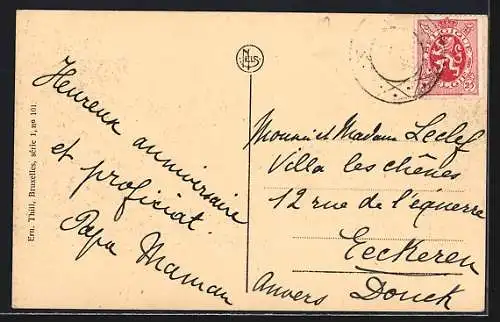 Ern. Thill, Bruxelles, série 1, no 101.
Heureux anniversaire
et proficiat.
Papa Maman
NELS
BELGIQUE
BELGIË
25
Monsr et Madame Leclef
Villa les chênes
12 rue de l'équerre
Eeckeren
Donck
Anvers